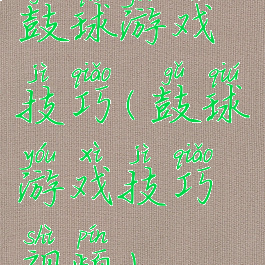 鼓球游戏
jì qiǎo gǔ qiú
技巧(鼓球
yóu xì jì qiǎo
游戏技巧
shì pín
视频)